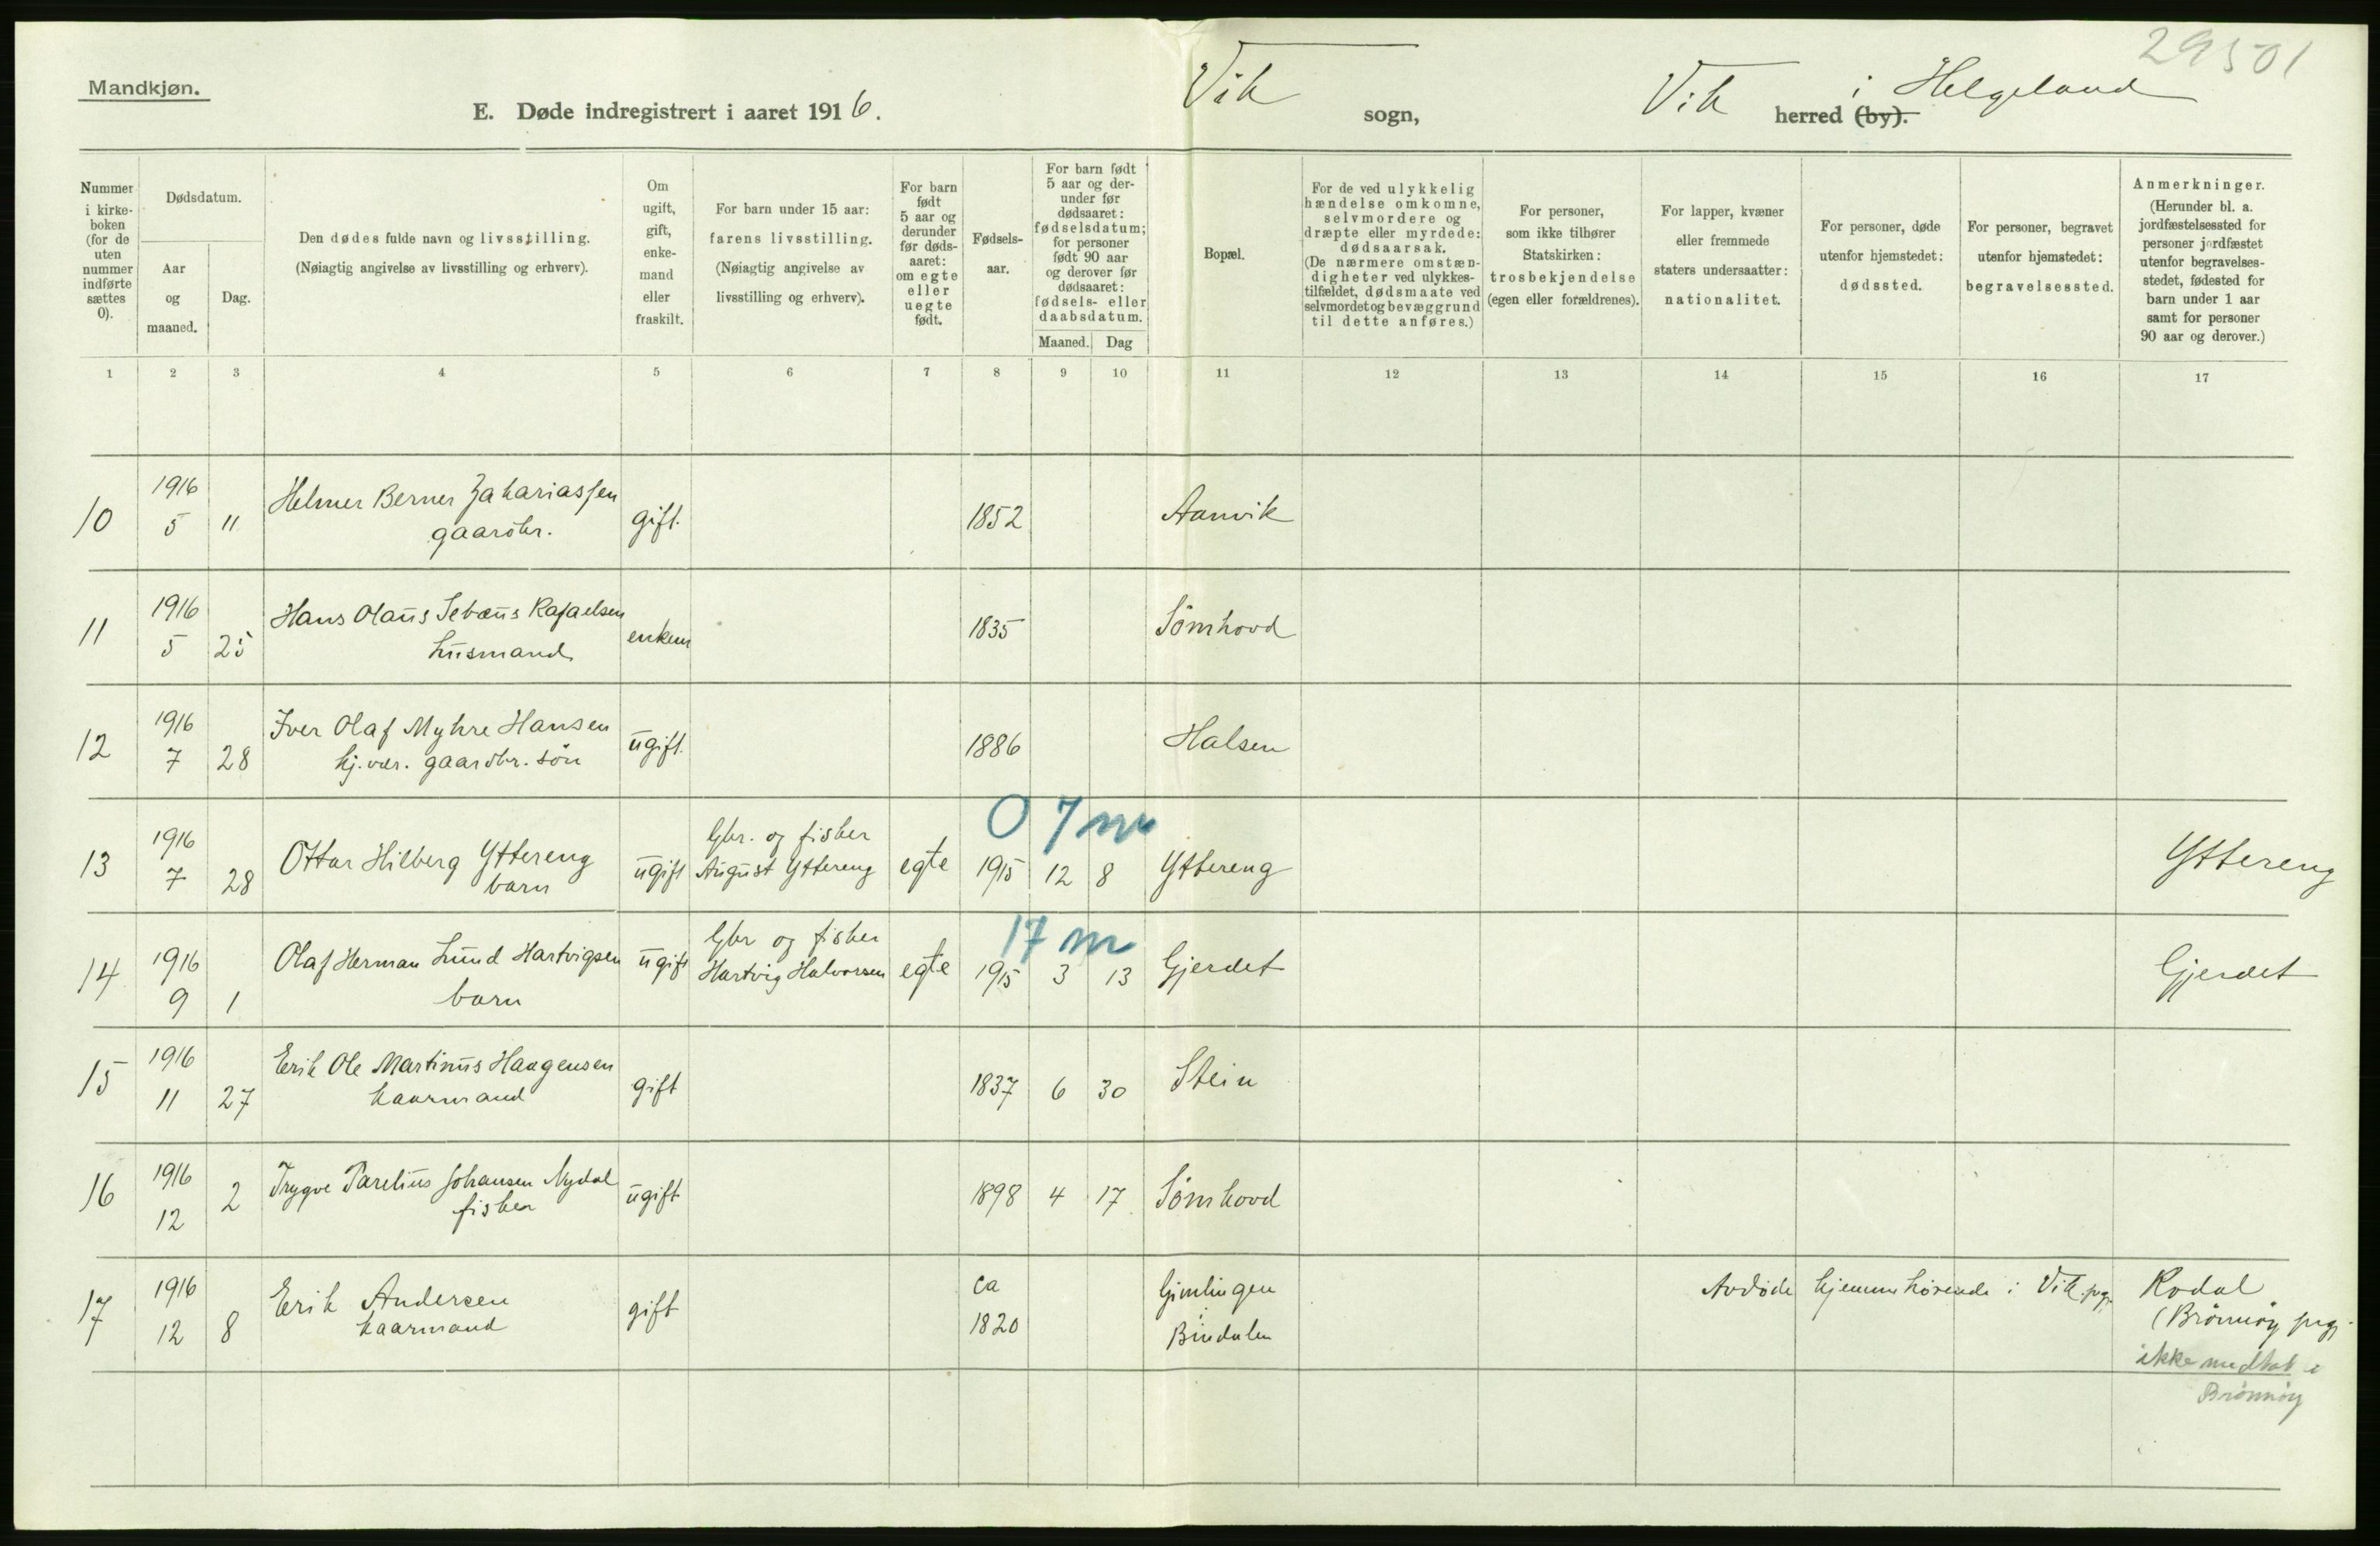 29501
Mandkjøn.
E. Døde indregistrert i aaret 1916.
Vik sogn,
Vik i Helgeland herred (by).
Nummer i kirkeboken (for de uten nummer indførte sættes 0).
Dødsdatum.
Aar og maaned.
Dag.
Den dødes fulde navn og livsstilling.
(Nøiagtig angivelse av livsstilling og erhverv).
Om ugift, gift, enkemand eller fraskilt.
For barn under 15 aar: farens livsstilling. (Nøiagtig angivelse av livsstilling og erhverv).
For barn født 5 aar og derunder før dødsaaret: om egte eller uegte født.
Fødselsaar.
For barn født 5 aar og derunder før dødsaaret: fødselsdatum; for personer født 90 aar og derover før dødsaaret: fødsels- eller daabsdatum.
Maaned. Dag
Bopæl.
For de ved ulykkelig hændelse omkomne, selvmordere og dræpte eller myrdede: dødsaarsak. (De nærmere omstændigheter ved ulykkestilfældet, dødsmaate ved selvmordet og bevæggrund til dette anføres.)
For personer, som ikke tilhører Statskirken: trosbekjendelse (egen eller forældrenes).
For lapper, kvæner eller fremmede staters undersaatter: nationalitet.
For personer, døde utenfor hjemstedet: dødssted.
For personer, begravet utenfor hjemstedet: begravelsessted.
Anmerkninger. (Herunder bl. a. jordfæstelsessted for personer jordfæstet utenfor begravelsesstedet, fødested for barn under 1 aar samt for personer 90 aar og derover.)
1 2 3 4 5 6 7 8 9 10 11 12 13 14 15 16 17
10 1916 5 11 Helmer Berner Zakariassen gaardbr. gift. 1852 Aanvik
11 1916 5 25 Hans Olaus Sebæus Rafaelsen husmand enkem 1835 Sömhovd
12 1916 7 28 Iver Olaf Myhre Hansen hj.vær. gaardbr. sön ugift. 1886 Halsen
0 7 m
13 1916 7 28 Ottar Hilberg Yttereng barn ugift Gbr. og fisker August Yttereng egte 1915 12 8 Yttereng Yttereng
17 m
14 1916 9 1 Olaf Herman Lund Hartvigsen barn ugift Gbr og fisker Hartvig Halvorsen egte 1915 3 13 Gjerdet Gjerdet
15 1916 11 27 Erik Ole Martinus Haagensen kaarmand gift 1837 6 30 Stein
16 1916 12 2 Trygve Parelius Johansen Nydal fisker ugift 1898 4 17 Sömhovd
17 1916 12 8 Erik Andersen kaarmand gift ca 1820 Gimlingen Bindalen Avdöde hjemmehörende i Vik prgj. Rodal (Brönnöy prgj.
ikke medtat i
Brönnöy